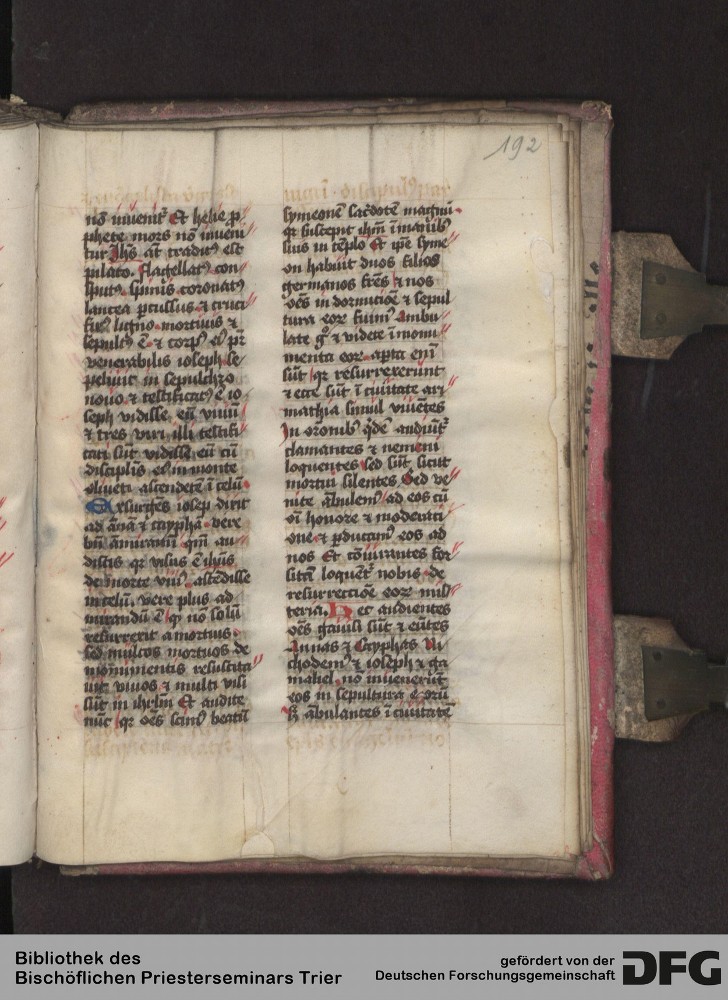 192
nō inuenit᷑ Et helie ꝓ
phete mors nō inueni
tur Ihs̄ at᷑ tradit⁹ est
pilato. flagellat⁹ con
sput⁹. spinis coronat⁹
lancea ꝑcussus ⁊ cruci
fix⁹ ligno mortuus ⁊
sepult⁹ ē ⁊ corp⁹ ei⁹ pr̄
venerabilis ioseph se
peliuit in sepulchro
nouo ⁊ testificat⁹ ē io
seph vidisse eū viuū
⁊ tres viri illi testifi
cati sūt vidisse eū cū
discipl̄is ei⁹ in monte
oliueti ascendētē ī celū
Exsurgēs iosep dixit
ad ānā ⁊ cayphā vere
bn̄ āmiramī qm̄ au
distis qr visus ē ih̄us
de morte viu⁹ ascēdisse
in celū. vere plus ad
mirandū ē qꝫ nō solū
resurrexit a mortuis
sed multos mortuos de
monumentis resuscita
uit viuos ⁊ multi visi
sūt in ihrl̄m Et audite
nūc qr oēs scim⁹ beatū
symeonē sac̄dotē magnū
qr suscepit ihm̄ ī manib⁹
suis in tēplo Et ip̄e syme
on habuit duos filios
germanos fr̄es ⁊ nos
oēs in dormiciōe ⁊ sepul
tura eoꝝ fuim⁹ Ambu
late gͦ ⁊ videte ī monu
menta eoꝝ apta enī
sūt qr resurrexerunt
⁊ ecce sūt ī ciuitate ari
mathia simul viuētes
In orōnib⁹ qͥdē audiūt᷑
clamantes ⁊ nemini
loquentes sed sūt sicut
mortui silentes Sed ve
nite ābulem⁹ ad eos cū
oī honore ⁊ moderati
one ⁊ ꝑducam⁹ eos ad
nos Et cōiurantes for
sitā loquēt᷑ nobis de
resurrectiōe eoꝝ mis
teria. Hec audientes
oēs gauisi sūt ⁊ eūtes
Annas ⁊ Cayphas Ni
chodem⁹ ⁊ ioseph ⁊ ga
maliel nō inuenerūt
eos in sepultura eoꝝ
sꝫ ābulantes ī ciuitatē
Bibliothek des
Bischöflichen Priesterseminars Trier
gefördert von der
Deutschen Forschungsgemeinschaft
DFG